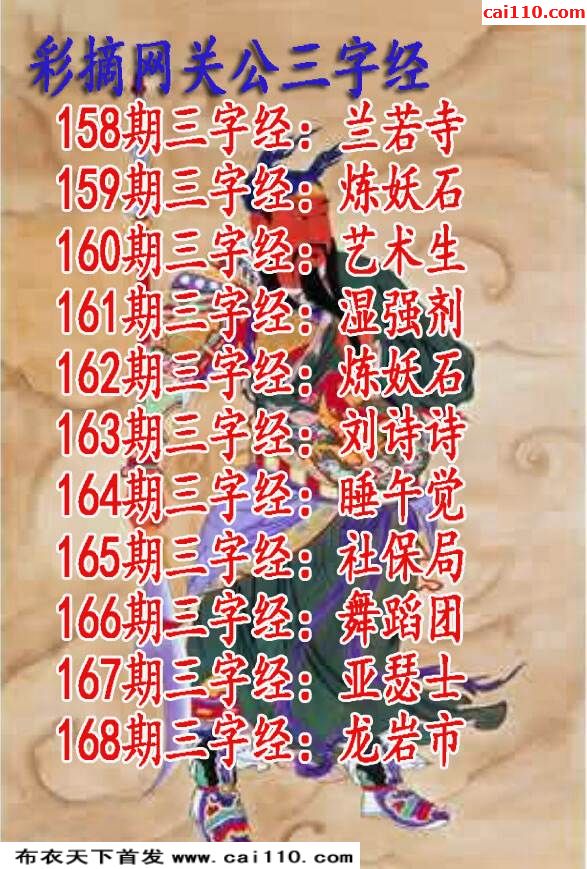 cai110.com
彩摘网关公三字经
158期三字经：兰若寺
159期三字经：炼妖石
160期三字经：艺术生
161期三字经：湿强剂
162期三字经：炼妖石
163期三字经：刘诗诗
164期三字经：睡午觉
165期三字经：社保局
166期三字经：舞蹈团
167期三字经：亚瑟士
168期三字经：龙岩市
布衣天下首发 www.cai110.com